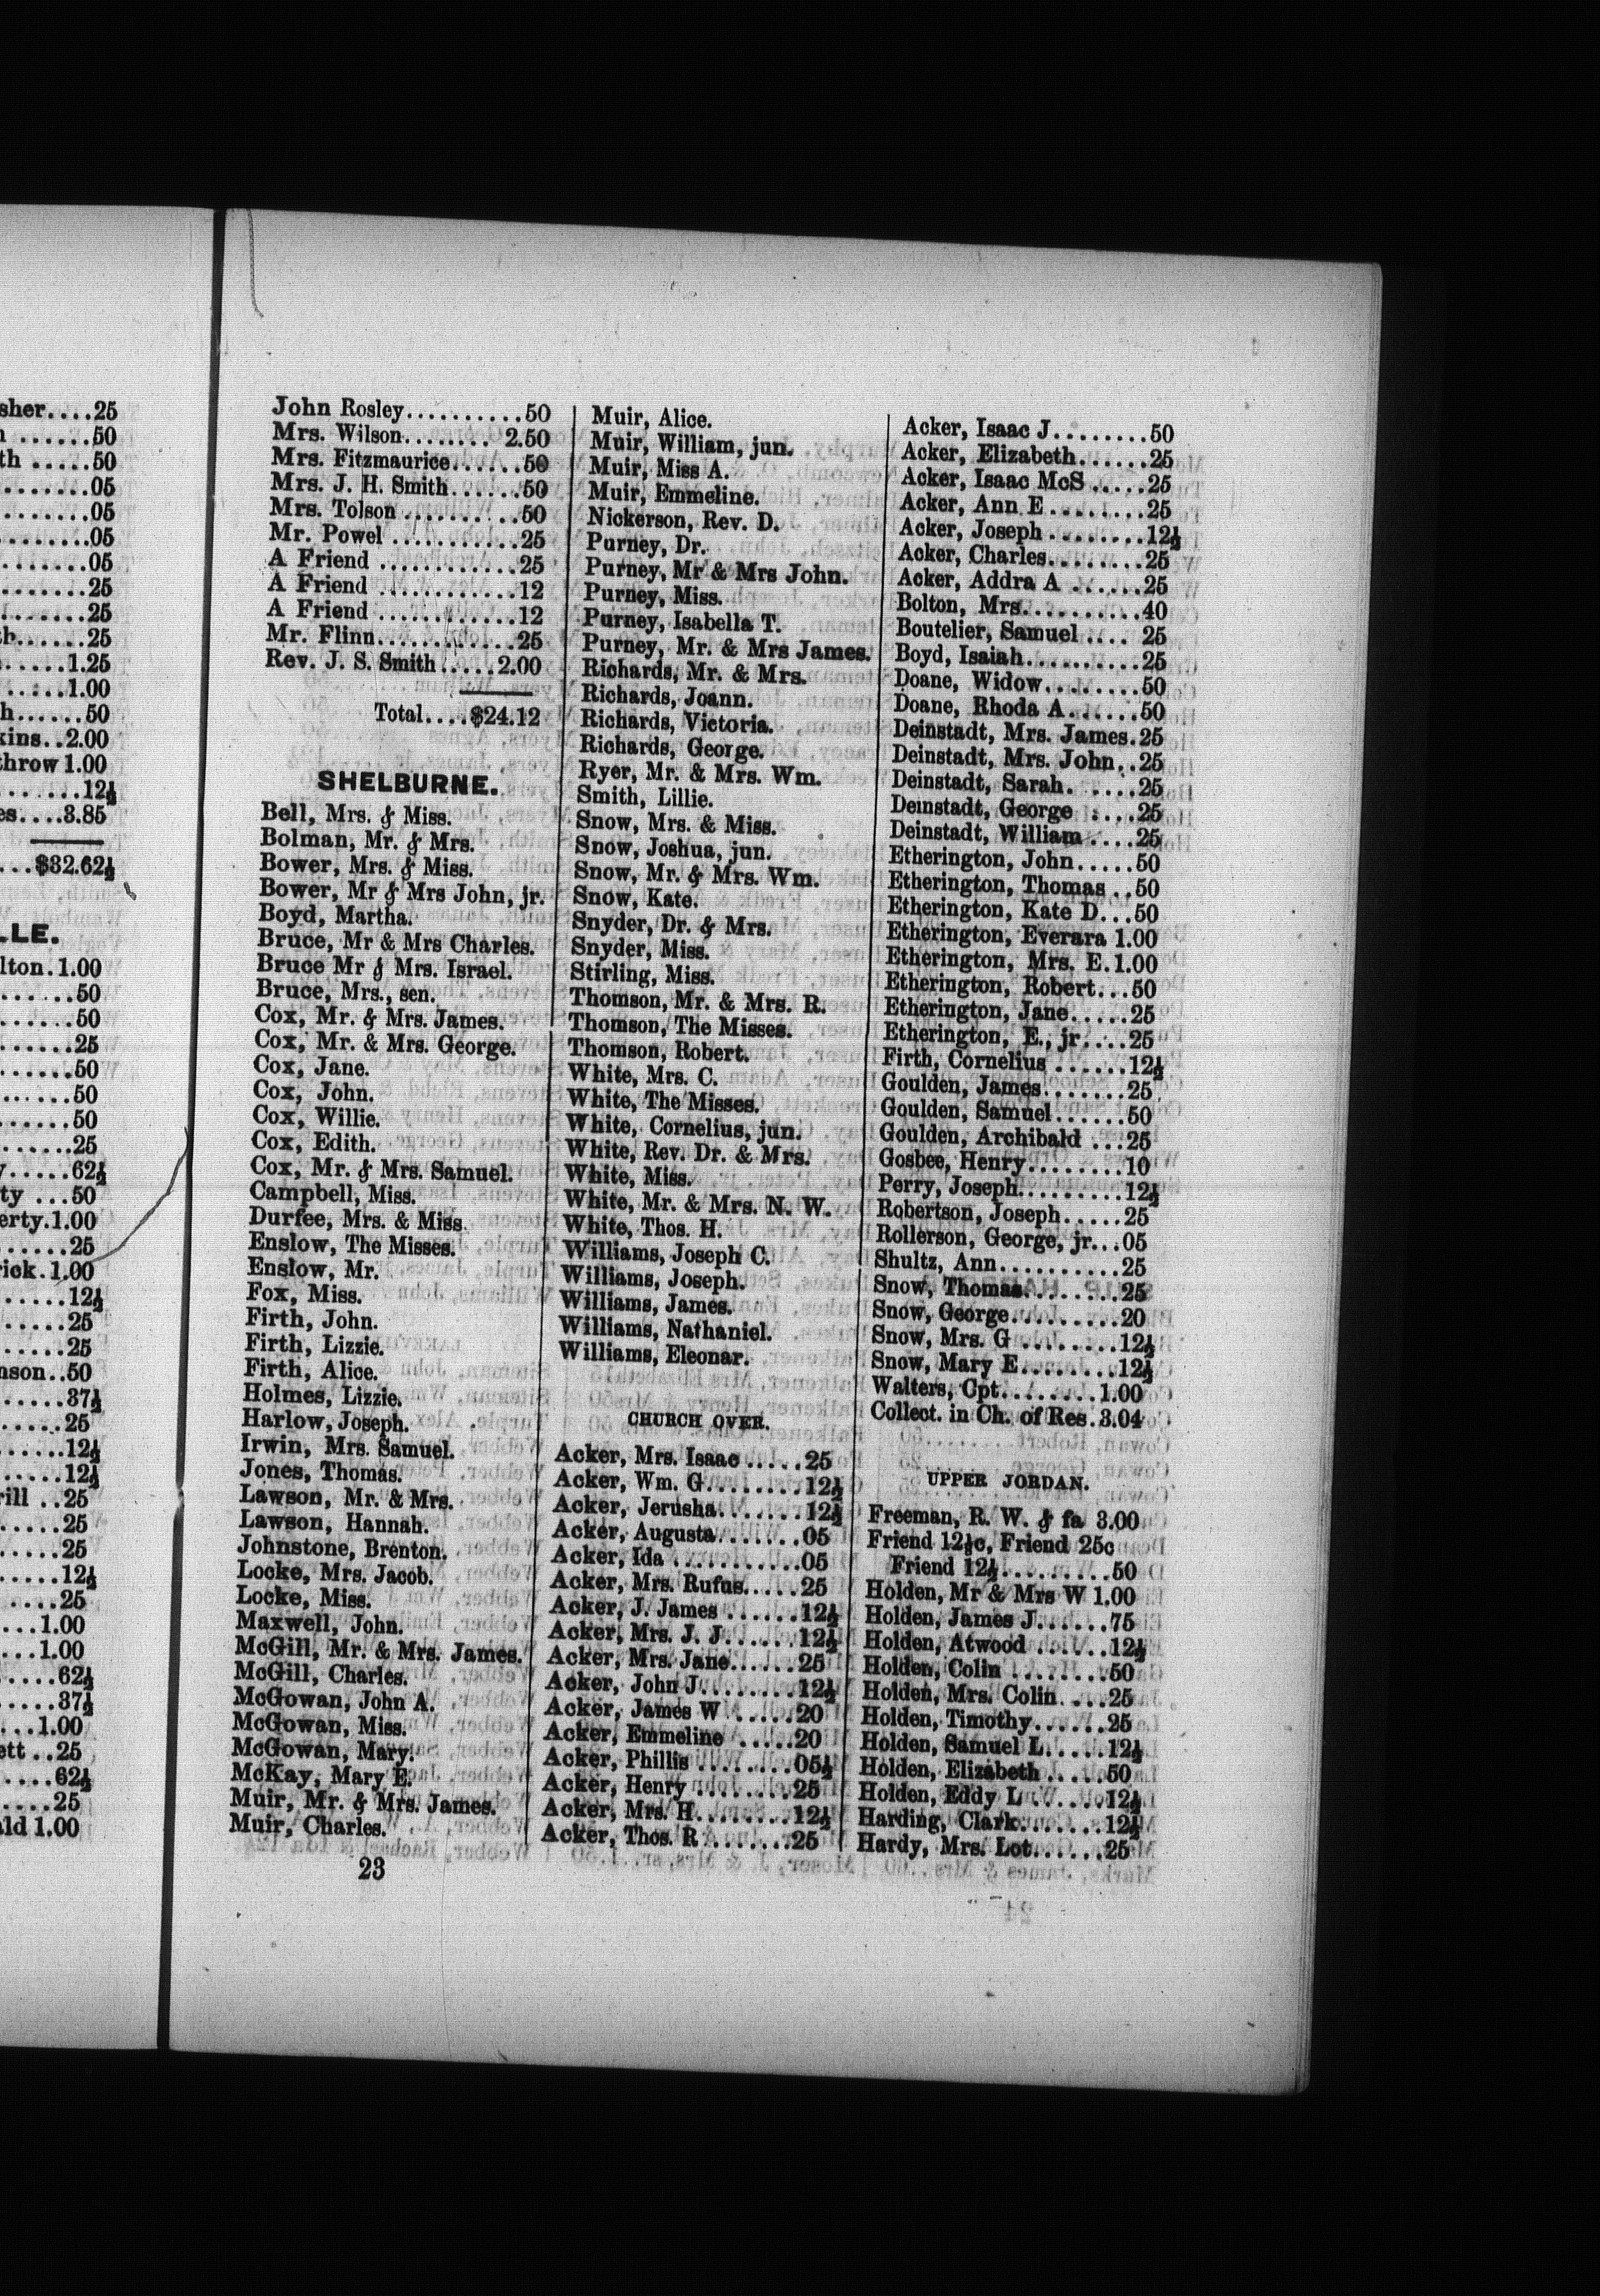 sher....25
......50
th .....50
........05
........05
........05
........05
........25
........25
h......25
......1.25
......1.00
h......50
kins..2.00
throw 1.00
........12½
es....3.85
...$32.62½
LLE.
lton.1.00
.......50
.......50
.......25
.......50
.......50
.......50
.......25
y.....62½
ty ...50
erty.1.00
......25
rick.1.00
......12½
......25
......25
nson..50
......37½
......25
......12½
......12½
rill ..25
......25
......25
......12½
......25
....1.00
....1.00
.....62½
.....37½
....1.00
ett ..25
.....62½
.....25
ald 1.00
John Rosley..........50
Mrs. Wilson........ 2.50
Mrs. Fitzmaurice......50
Mrs. J. H. Smith......50
Mrs. Tolson ..........50
Mr. Powel ...........25
A Friend ............25
A Friend ............12
A Friend ............12
Mr. Flinn............25
Rev. J. S. Smith .....2.00
Total....$24.12
SHELBURNE.
Bell, Mrs. & Miss.
Bolman, Mr. & Mrs.
Bower, Mrs. & Miss.
Bower, Mr & Mrs John, jr.
Boyd, Martha.
Bruce, Mr & Mrs Charles.
Bruce Mr & Mrs. Israel.
Bruce, Mrs., sen.
Cox, Mr. & Mrs. James.
Cox, Mr. & Mrs. George.
Cox, Jane.
Cox, John.
Cox, Willie.
Cox, Edith.
Cox, Mr. & Mrs. Samuel.
Campbell, Miss.
Durfee, Mrs. & Miss.
Enslow, The Misses.
Enslow, Mr.
Fox, Miss.
Firth, John.
Firth, Lizzie.
Firth, Alice.
Holmes, Lizzie.
Harlow, Joseph.
Irwin, Mrs. Samuel.
Jones, Thomas.
Lawson, Mr. & Mrs.
Lawson, Hannah.
Johnstone, Brenton.
Locke, Mrs. Jacob.
Locke, Miss.
Maxwell, John.
McGill, Mr. & Mrs. James.
McGill, Charles.
McGowan, John A.
McGowan, Miss.
McGowan, Mary.
McKay, Mary E.
Muir, Mr. & Mrs. James.
Muir, Charles.
23
Muir, Alice.
Muir, William, jun.
Muir, Miss A.
Muir, Emmeline.
Nickerson, Rev. D.
Purney, Dr.
Purney, Mr & Mrs John.
Purney, Miss.
Purney, Isabella T.
Purney, Mr. & Mrs James.
Richards, Mr. & Mrs.
Richards, Joann.
Richards, Victoria.
Richards, George.
Ryer, Mr. & Mrs. Wm.
Smith, Lillie.
Snow, Mrs. & Miss.
Snow, Joshua, jun.
Snow, Mr. & Mrs. Wm.
Snow, Kate.
Snyder, Dr. & Mrs.
Snyder, Miss.
Stirling, Miss.
Thomson, Mr. & Mrs. R.
Thomson, The Misses.
Thomson, Robert.
White, Mrs. C.
White, The Misses.
White, Cornelius, jun.
White, Rev. Dr. & Mrs.
White, Miss.
White, Mr. & Mrs. N. W.
White, Thos. H.
Williams, Joseph C.
Williams, Joseph.
Williams, James.
Williams, Nathaniel.
Williams, Eleonar.
CHURCH OVER.
Acker, Mrs. Isaac .....25
Acker, Wm. G........12½
Acker, Jerusha.......12½
Acker, Augusta.......05
Acker, Ida ...........05
Acker, Mrs. Rufus.....25
Acker, J. James ......12½
Acker, Mrs. J. J......12½
Acker, Mrs. Jane......25
Acker, John J........12½
Acker, James W .....20
Acker, Emmeline .....20
Acker, Phillis ........05½
Acker, Henry.........25
Acker, Mrs. H........12½
Acker, Thos. R .......25
Acker, Isaac J........50
Acker, Elizabeth......25
Acker, Isaac McS .....25
Acker, Ann E ........25
Acker, Joseph ........12½
Acker, Charles........25
Acker, Addra A ......25
Bolton, Mrs..........40
Boutelier, Samuel .... 25
Boyd, Isaiah..........25
Doane, Widow........50
Doane, Rhoda A......50
Deinstadt, Mrs. James.25
Deinstadt, Mrs. John..25
Deinstadt, Sarah. .....25
Deinstadt, George ....25
Deinstadt, William....25
Etherington, John.....50
Etherington, Thomas ..50
Etherington, Kate D...50
Etherington, Everara 1.00
Etherington, Mrs. E.1.00
Etherington, Robert...50
Etherington, Jane.....25
Etherington, E., jr....25
Firth, Cornelius ......12½
Goulden, James.......25
Goulden, Samuel......50
Goulden, Archibald ...25
Gosbee, Henry........10
Perry, Joseph.........12½
Robertson, Joseph.....25
Rollerson, George, jr...05
Shultz, Ann..........25
Snow, Thomas........25
Snow, George.........20
Snow, Mrs. G ........12½
Snow, Mary E........12½
Walters, Cpt........1.00
Collect. in Ch. of Res.3.04
UPPER JORDAN.
Freeman, R. W. & fa 3.00
Friend 12½c, Friend 25c
Friend 12½..........50
Holden, Mr & Mrs W 1.00
Holden, James J......75
Holden, Atwood ......12½
Holden, Colin ........50
Holden, Mrs. Colin....25
Holden, Timothy......25
Holden, Samuel L.....12½
Holden, Elizabeth .....50
Holden, Eddy L ......12½
Harding, Clark.......12½
Hardy, Mrs. Lot......25